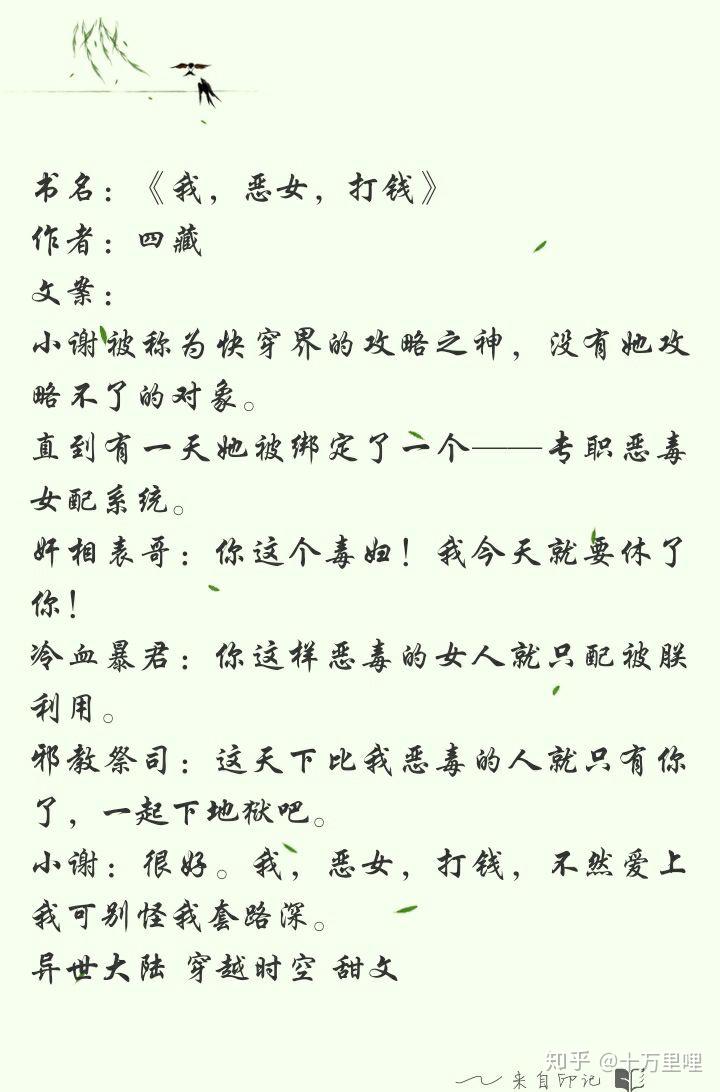 书名：《我，恶女，打钱》
作者：四藏
文案：
小谢被称为快穿界的攻略之神，没有她攻
略不了的对象。
直到有一天她被绑定了一个——专职恶毒
女配系统。
奸相表哥：你这个毒妇！我今天就要休了
你！
冷血暴君：你这样恶毒的女人就只配被朕
利用。
邪教祭司：这天下比我恶毒的人就只有你
了，一起下地狱吧。
小谢：很好。我，恶女，打钱，不然爱上
我可别怪我套路深。
异世大陆 穿越时空 甜文
知乎 @十万里哩
来自印记